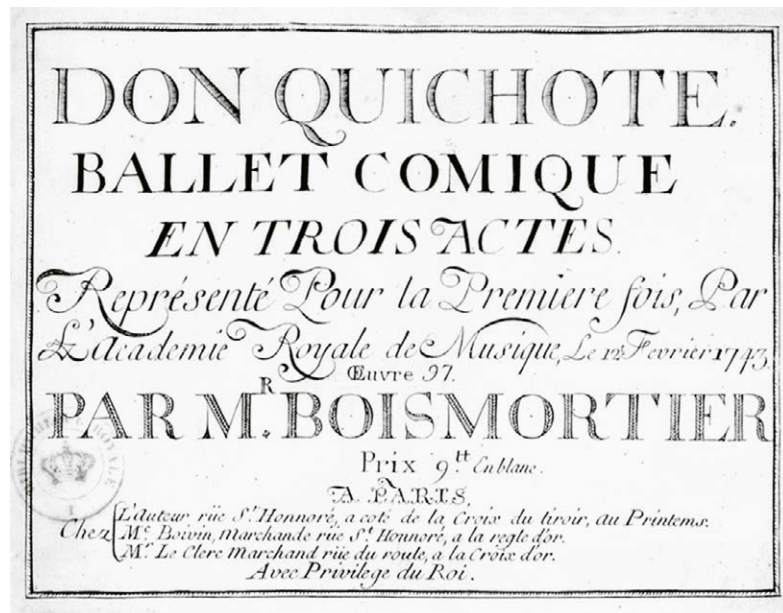 DON QUICHOTE.
BALLET COMIQUE
EN TROIS ACTES.
Représenté Pour la Premiere fois, Par
L'Academie Royale de Musique, Le 12.e Fevrier 1743.
Œuvre 97.
PAR M.R BOISMORTIER
Prix 9.tt En blanc.
A PARIS,
Chez
L'auteur rüe S.t Honnoré, a coté de la Croix du tiroir, au Printems.
M.e Boivin, Marchande rüe S.t Honnoré, a la regle d'or.
M.r Le Clerc Marchand rüe du roule, a la Croix d'or.
Avec Privilege du Roi.